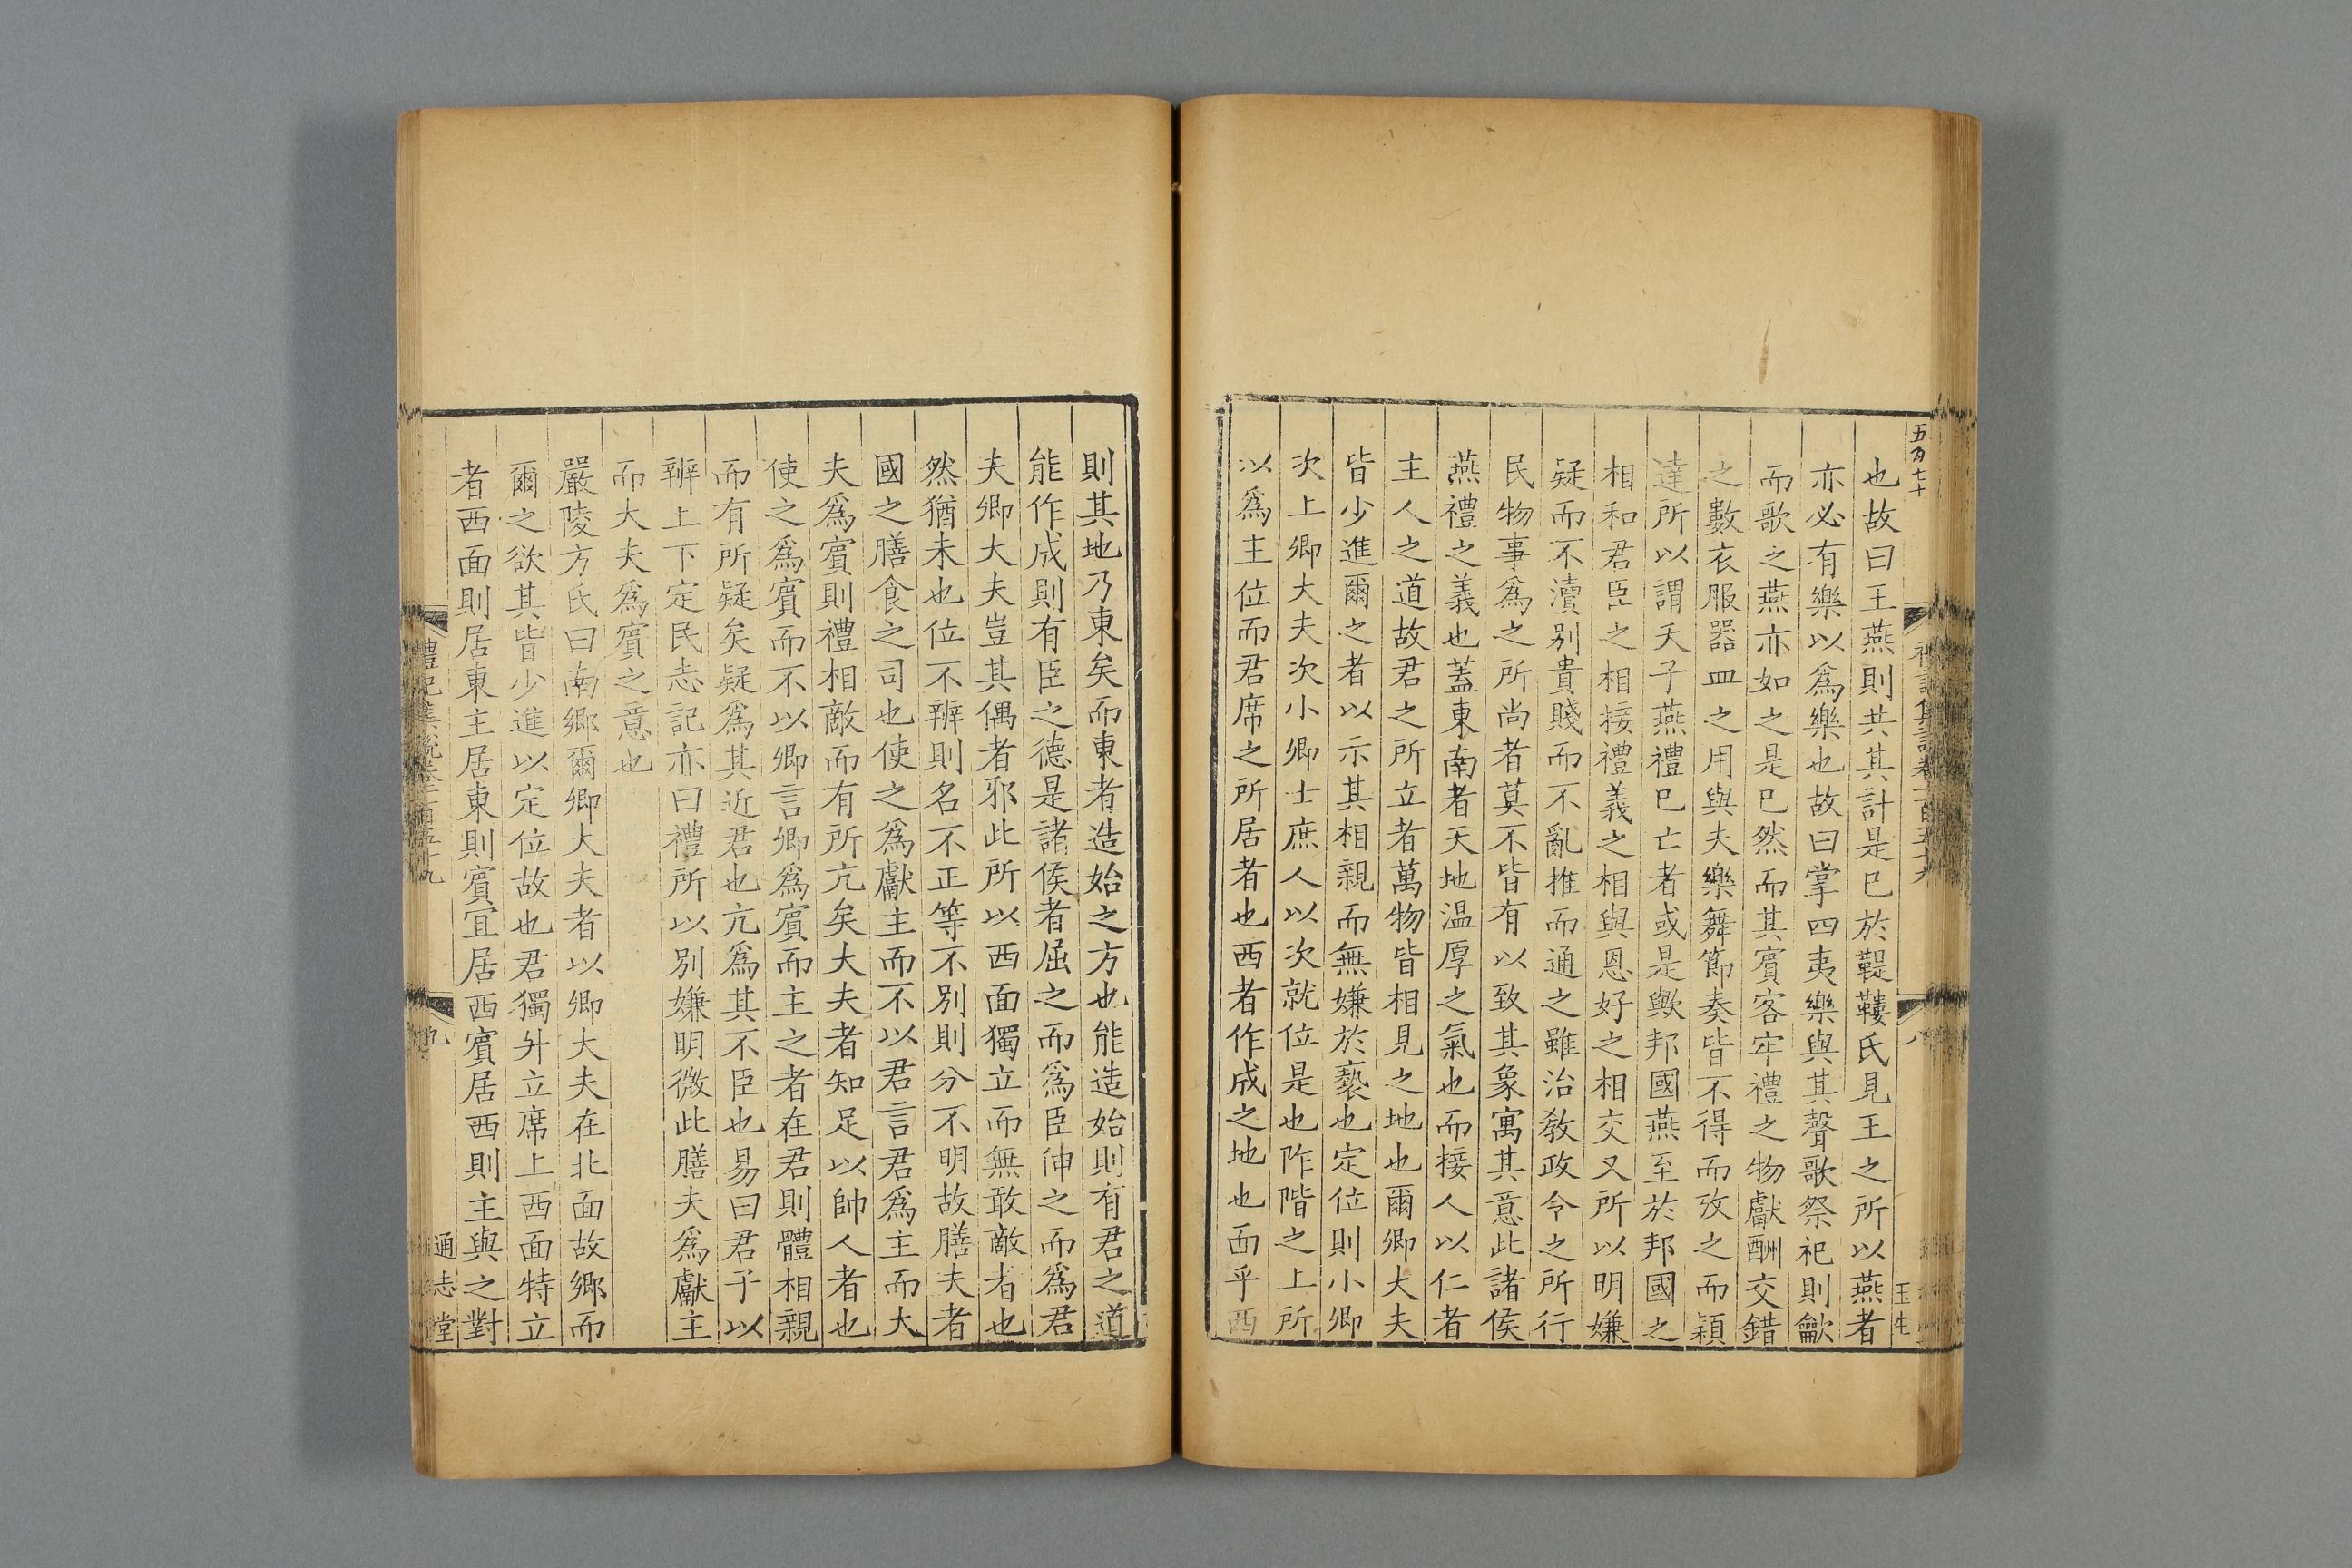 五百七十
禮記集說卷一百五十九
八
玉生
也故曰王燕則共其計是巳於鞮鞻氏見王之所以燕者
亦必有樂以爲樂也故曰掌四夷樂與其聲歌祭祀則龡
而歌之燕亦如之是巳然而其賔客牢禮之物獻酬交錯
之數衣服器皿之用與夫樂舞節奏皆不得而攷之而穎
達所以謂天子燕禮巳亡者或是歟邦國燕至於邦國之
相和君臣之相接禮義之相與恩好之相交又所以明嫌
疑而不瀆别貴賤而不亂推而通之雖治教政令之所行
民物事爲之所尚者莫不皆有以致其象寓其意此諸侯
燕禮之義也蓋東南者天地温厚之氣也而接人以仁者
主人之道故君之所立者萬物皆相見之地也爾卿大夫
皆少進爾之者以示其相親而無嫌於褻也定位則小卿
次上卿大夫次小卿士庶人以次就位是也阼階之上所
以爲主位而君席之所居者也西者作成之地也面乎西
則其地乃東矣而東者造始之方也能造始則有君之道
能作成則有臣之德是諸侯者屈之而爲臣伸之而爲君
夫卿大夫豈其偶者邪此所以西面獨立而無敢敵者也
然猶未也位不辨則名不正等不別則分不明故膳夫者
國之膳食之司也使之爲獻主而不以君言君爲主而大
夫爲賔則禮相敵而有所亢矣大夫者知足以帥人者也
使之爲賔而不以卿言卿爲賔而主之者在君則體相親
而有所疑矣疑爲其近君也亢爲其不臣也易曰君子以
辨上下定民志記亦曰禮所以別嫌明微此膳夫爲獻主
而大夫爲賔之意也
嚴陵方氏曰南鄉爾卿大夫者以卿大夫在北面故鄉而
爾之欲其皆少進以定位故也君獨升立席上西面特立
者西面則居東主居東則賔宜居西賔居西則主與之對
禮記集說卷一百五十九
九
通志堂